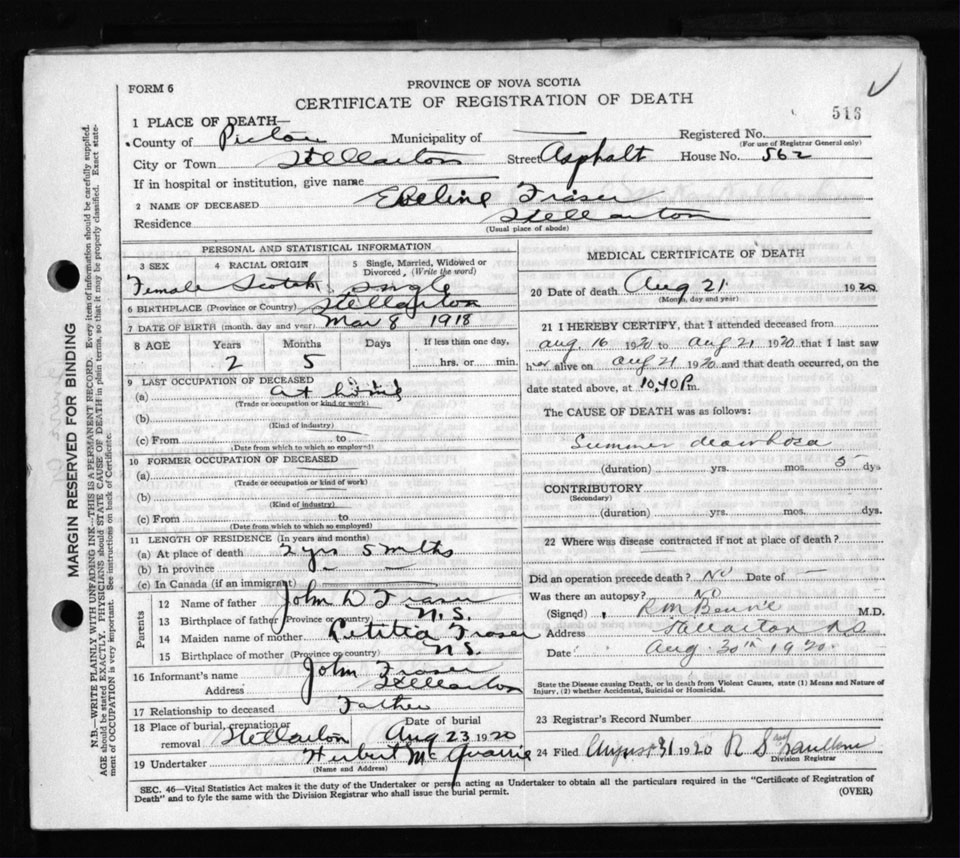 FORM 6
PROVINCE OF NOVA SCOTIA
CERTIFICATE OF REGISTRATION OF DEATH
516
1 PLACE OF DEATH—
County of Pictou Municipality of — Registered No.
(For use of Registrar General only)
City or Town Stellarton Street Asphalt House No. 562
If in hospital or institution, give name —
2 NAME OF DECEASED Eveline Fraser
Residence Stellarton
(Usual place of abode)
PERSONAL AND STATISTICAL INFORMATION
3 SEX 4 RACIAL ORIGIN 5 Single, Married, Widowed or Divorced, (Write the word)
Female Scotch Single
6 BIRTHPLACE (Province or Country) Stellarton
7 DATE OF BIRTH (month, day and year) Mar 8 1918
8 AGE Years Months Days If less than one day,
2 5 hrs. or min.
9 LAST OCCUPATION OF DECEASED
(a) at home
(Trade or occupation or kind or work)
(b)
(Kind of industry)
(c) From to
(Date from which to which so employed)
10 FORMER OCCUPATION OF DECEASED
(a)
(Trade or occupation or kind of work)
(b)
(Kind of industry)
(c) From to
(Date from which to which so employed)
11 LENGTH OF RESIDENCE (In years and months)
(a) At place of death 2 yrs 5 mths
(b) In province — —
(c) In Canada (if an immigrant)
Parents
12 Name of father John D Fraser
13 Birthplace of father (Province or country) N.S.
14 Maiden name of mother Letitia Fraser
15 Birthplace of mother (Province or country) N.S.
16 Informant's name John Fraser
Address Stellarton
17 Relationship to deceased Father
18 Place of burial, cremation or removal Stellarton Date of burial Aug 23 1920
19 Undertaker Hubert McQuarrie
(Name and Address)
MEDICAL CERTIFICATE OF DEATH
20 Date of death Aug 21 1920
(Month, day and year)
21 I HEREBY CERTIFY, that I attended deceased from
Aug. 16 1920 to Aug 21 1920 that I last saw
her alive on Aug 21 1920 and that death occurred, on the
date stated above, at 10.40 P.m.
The CAUSE OF DEATH was as follows:
Summer diarrhoea
(duration) yrs. mos. 5 dys
CONTRIBUTORY
(Secondary)
(duration) yrs. mos. dys.
22 Where was disease contracted if not at place of death?
Did an operation precede death? No Date of —
Was there an autopsy? No
(Signed) R M Benvie M.D.
Address Stellarton N.S.
Date Aug. 30th 1920.
State the Disease causing Death, or in death from Violent Causes, state (1) Means and Nature of Injury, (2) whether Accidental, Suicidal or Homicidal.
23 Registrar's Record Number
24 Filed August 31 1920 R
Division Registrar
SEC. 46—Vital Statistics Act makes it the duty of the Undertaker or person acting as Undertaker to obtain all the particulars required in the "Certificate of Registration of
Death" and to fyle the same with the Division Registrar who shall issue the burial permit. (OVER)
MARGIN RESERVED FOR BINDING
N.B.—WRITE PLAINLY WITH UNFADING INK—THIS IS A PERMANENT RECORD. Every item of information should be carefully supplied.
AGE should be stated EXACTLY. PHYSICIANS should STATE CAUSE OF DEATH in plain terms, so that it may be properly classified. Exact statement of OCCUPATION is very important. See instructions on back of Certificate.